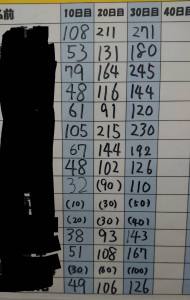 名前 10日目 20日目 30日目 40日目
108 211 271
53 131 180
79 164 245
48 116 144
61 91 120
105 215 230
67 144 192
48 102 126
32 (90) 110
(10) (30) (50)
(20) (30) (40)
38 93 143
51 108 167
(30) (60) (100)
49 106 126